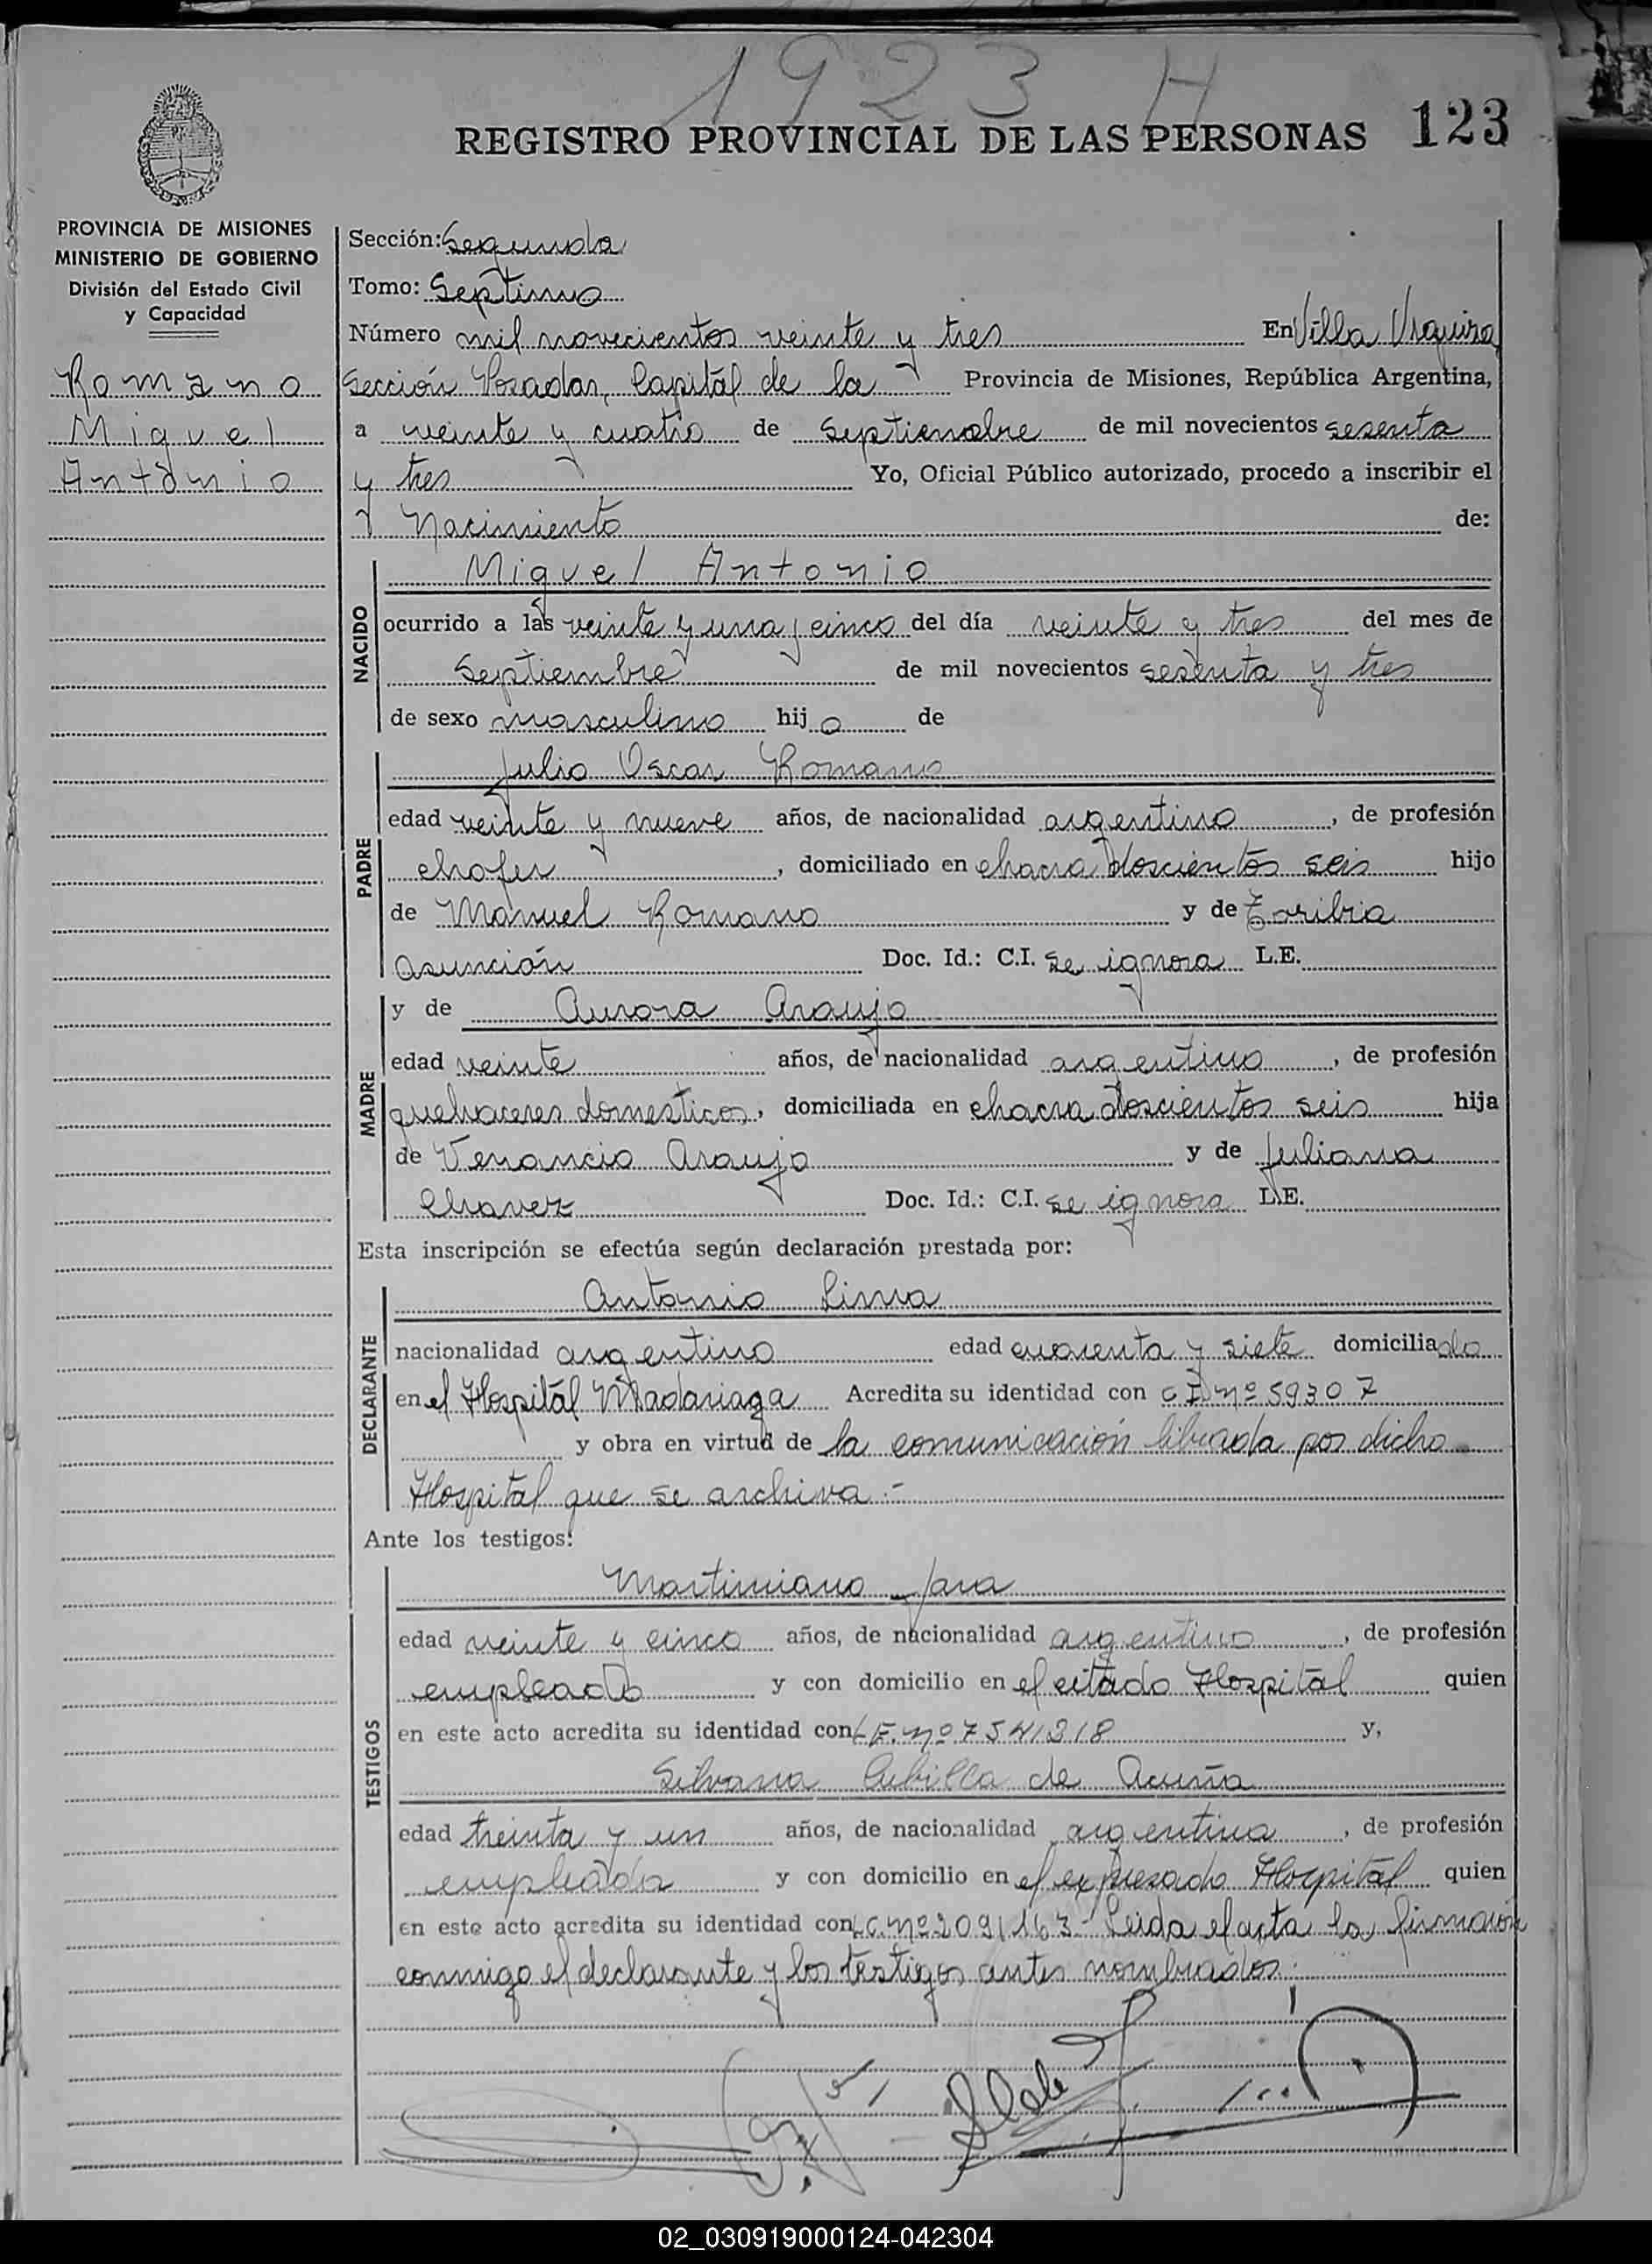 1923 H
REGISTRO PROVINCIAL DE LAS PERSONAS 123
PROVINCIA DE MISIONES
MINISTERIO DE GOBIERNO
División del Estado Civil
y Capacidad
Romano
Miguel
Antonio
Sección: Segunda
Tomo: Septimo
Número mil novecientos veinte y tres En Villa Urquiza
Sección Posadas, Capital de la Provincia de Misiones, República Argentina,
a veinte y cuatro de Septiembre de mil novecientos sesenta
y tres Yo, Oficial Público autorizado, procedo a inscribir el
Nacimiento de:
NACIDO
Miguel Antonio
ocurrido a las veinte y una y cinco del día veinte y tres del mes de
Septiembre de mil novecientos sesenta y tres
de sexo masculino hijo de
PADRE
Julio Oscar Romano
edad veinte y nueve años, de nacionalidad argentino, de profesión
chofer, domiciliado en chacra doscientos seis hijo
de Manuel Romano y de Toribia
Asunción Doc. Id.: C.I. se ignora L.E.
MADRE
y de Aurora Araujo
edad veinte años, de nacionalidad argentino, de profesión
quehaceres domesticos, domiciliada en chacra doscientos seis hija
de Venancio Araujo y de Juliana
Chavez Doc. Id.: C.I. se ignora L.E.
Esta inscripción se efectúa según declaración prestada por:
DECLARANTE
Antonio Lima
nacionalidad argentino edad cuarenta y siete domiciliado
en el Hospital Madariaga Acredita su identidad con C I nº 59307
y obra en virtud de la comunicación librada por dicho
Hospital que se archiva.-
Ante los testigos:
TESTIGOS
Martiniano Jara
edad veinte y cinco años, de nacionalidad argentino, de profesión
empleado y con domicilio en el citado Hospital quien
en este acto acredita su identidad con L E. nº 7541318 y,
Silvana Cubilla de Acuña
edad treinta y un años, de nacionalidad argentina, de profesión
empleada y con domicilio en el expresado Hospital quien
en este acto acredita su identidad con L.C. nº 2091163- Leida el acta la firmaron
conmigo el declarante y los testigos antes nombrados.
02_030919000124-042304